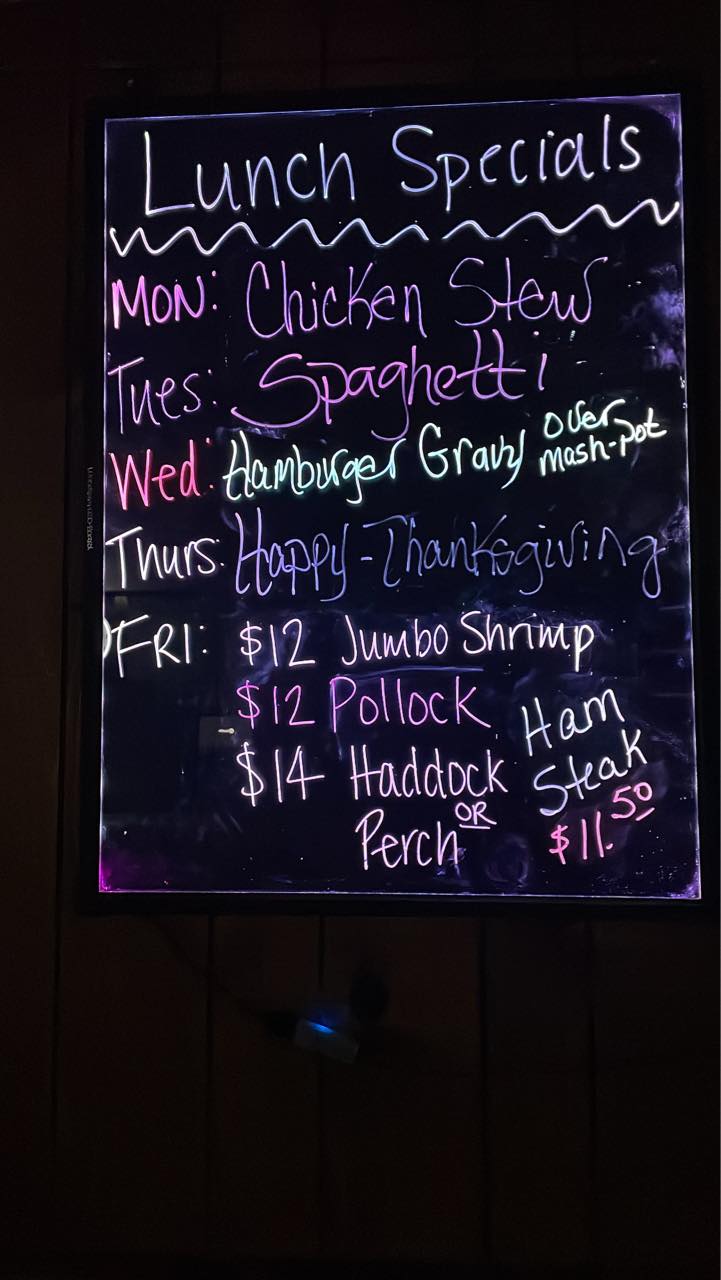 Lunch Specials
MON: Chicken Stew
Tues: Spaghetti
Wed: Hamburger Gravy over mash-pot
Thurs: Happy-Thanksgiving
FRI: $12 Jumbo Shrimp
$12 Pollock
$14 Haddock OR
Perch
Ham
Steak
$11.50